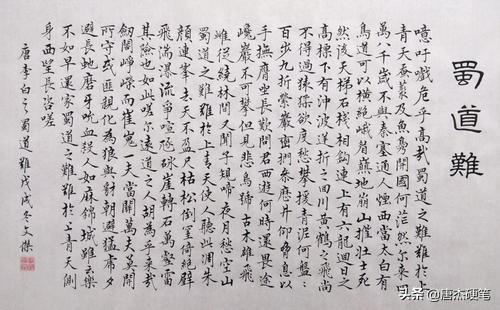 蜀道難
噫吁嚱危乎高哉蜀道之難難於上
青天蠶叢及魚鳧開國何茫然爾來四
萬八千歲不與秦塞通人煙西當太白有
鳥道可以橫絕峨眉巔地崩山摧壯士死
然後天梯石棧相鉤連上有六龍回日之
高標下有沖波逆折之回川黃鶴之飛尚
不得過猿猱欲度愁攀援青泥何盤〻
百步九折縈巖巒捫參歷井仰脅息以
手撫膺坐長歎問君西遊何時還畏途
巉巖不可攀但見悲鳥號古木雄飛
雌從繞林間又聞子規啼夜月愁空山
蜀道之難難於上青天使人聽此凋朱
顏連峯去天不盈尺枯松倒掛倚絕壁
飛湍瀑流爭喧豗砯崖轉石萬壑雷
其險也如此嗟爾遠道之人胡為乎來哉
劍閣崢嶸而崔嵬一夫當關萬夫莫開
所守或匪親化為狼與豺朝避猛虎夕
避長蛇磨牙吮血殺人如麻錦城雖云樂
不如早還家蜀道之難難於上青天側
身西望長咨嗟
唐李白之蜀道難戊戌冬文傑
头条 @唐杰硬笔